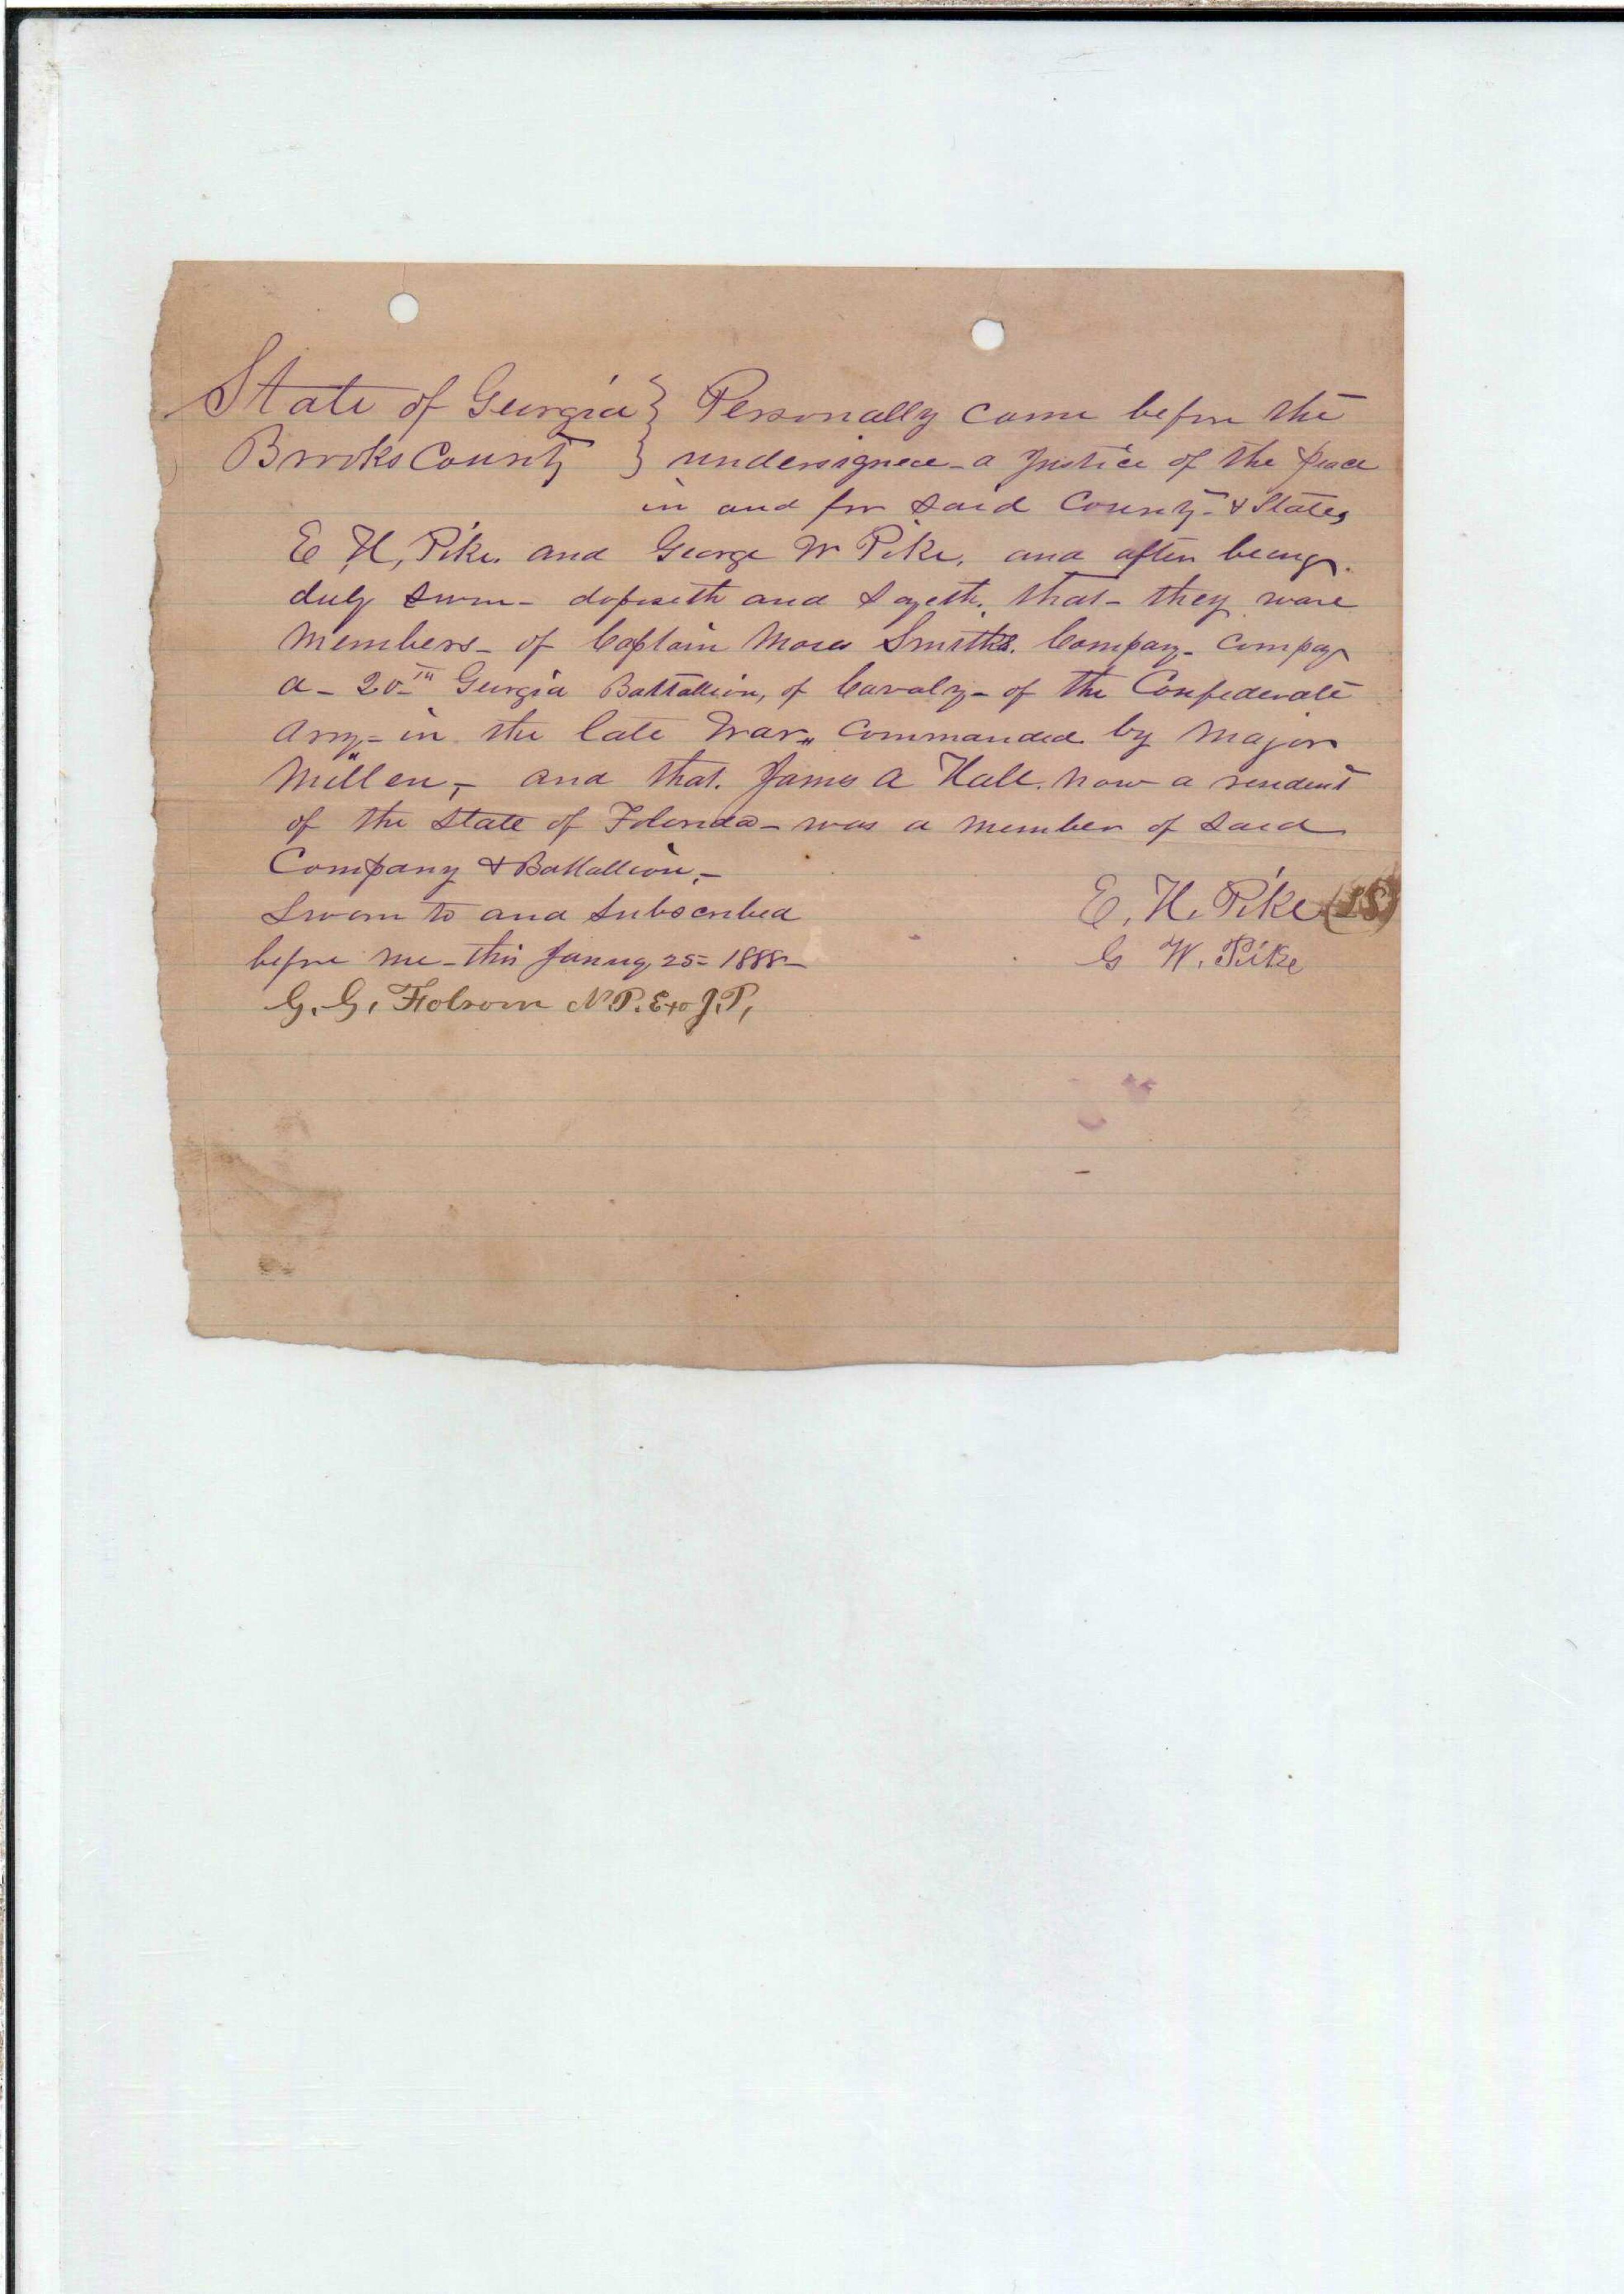 State of Georgia } Personally came before the
Brooks County } undersigned - a Justice of the peace
in and for said County - & State,
E, H, Pike. and George W Pike, and after being
duly sworn - deposeth and sayeth. that - they ware
Members - of Captain Moses Smiths. Company - Company
A - 20th Georgia Battallion, of Cavalry - of the Confederate
Army - in the late War,, Commanded by Major
Millen, - and that. James A Hall. now a resident
of the State of Folorida - was a member of said
Company & Battallion, -
Sworn to and Subscribed
E. H. Pike (LS)
before me - this January 25 = 1888 -
G W. Pike
G. G. Folsom N.P. Exo J.P,